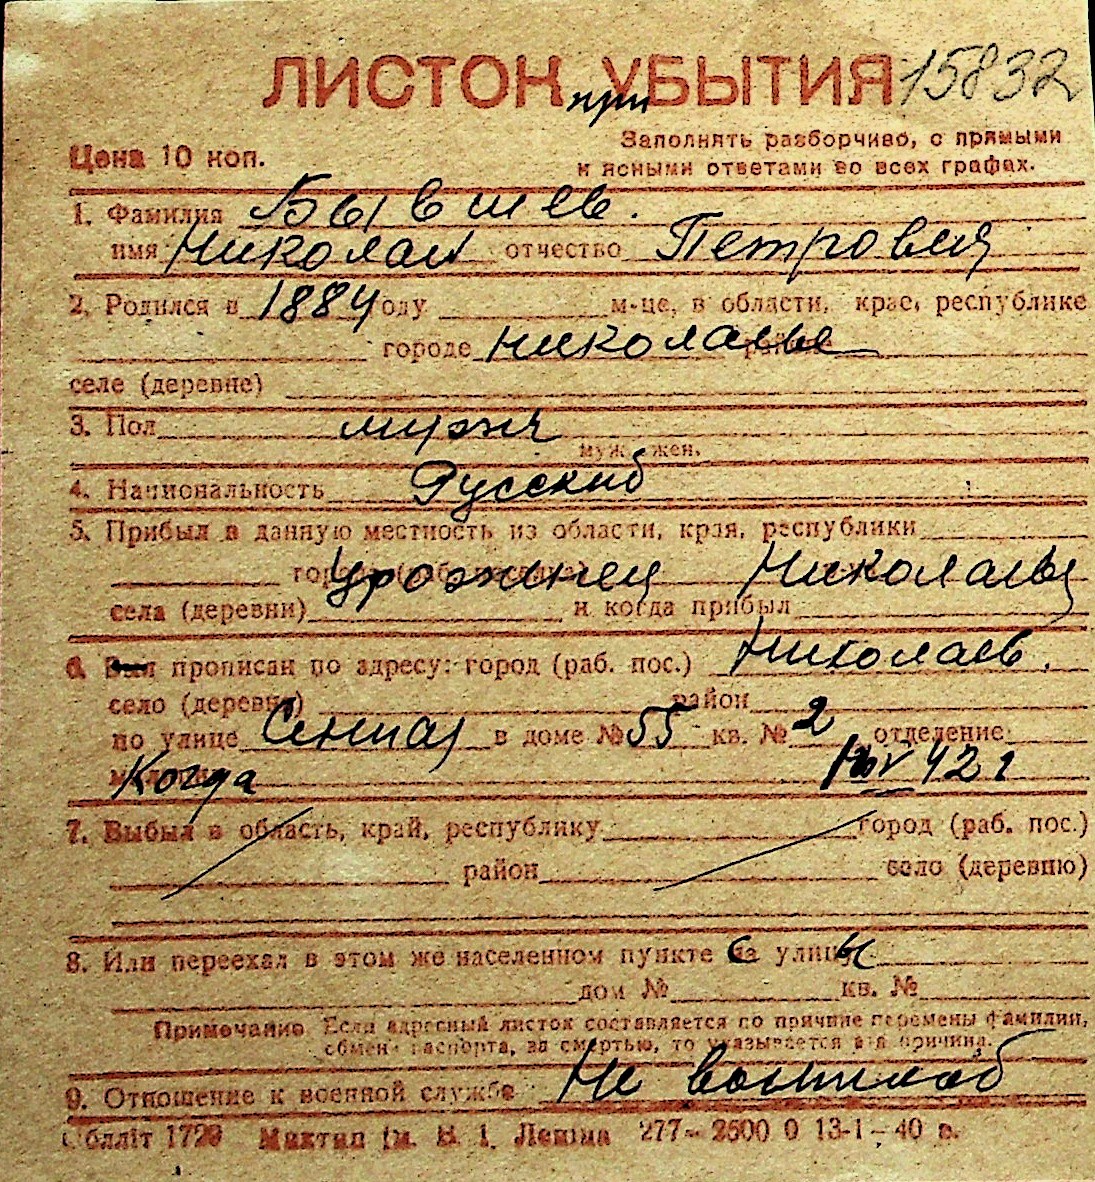 ЛИСТОК при УБЫТИЯ 15832
Цена 10 коп.
Заполнять разборчиво, с прямыми
и ясными ответами во всех графах.
1. Фамилия Бывшев.
имя Николай отчество Петрович
2. Родился в 1884 году м-це, в области, крае, республике
городе Николаеве
селе (деревне)
3. Пол мужч
муж. жен.
4. Национальность Русский
5. Прибыл в данную местность из области, края, республики
Уроженец Николаева
села (деревни) и когда прибыл
6. прописан по адресу: город (раб. пос.) Николаев.
село (деревня) район
по улице Сенная в доме № 55 кв. № 2 отделение
Когда 42 г
7. Выбыл в область, край, республику город (раб. пос.)
район село (деревню)
8. Или переехал в этом же населенном пункте с улицы
дом № кв. №
Примечание. Если адресный листок составляется по причине перемены фамилии,
обмена паспорта, за смертью, то указывается эта причина.
9. Отношение к военной службе Не военнооб
Обллiт 1729 iм. В. I. Ленiна 277—2500 0 13-1—40 в.